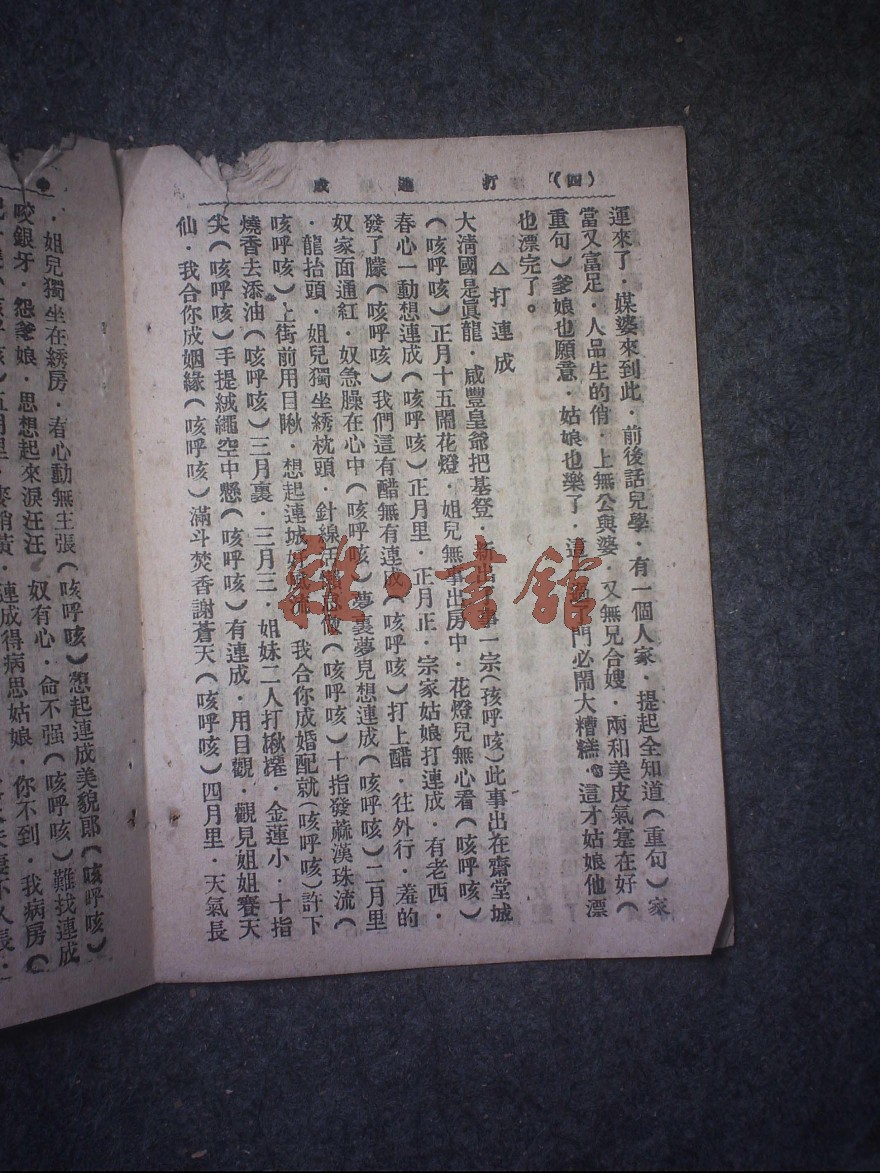 (四) 打連成
運來了．媒婆來到此．前後話兒學．有一個人家．提起全知道（重句）家
當又富足．人品生的俏．上無公與婆．又無兄合嫂．兩和美皮氣寔在好（
重句）爹娘也願意．姑娘也樂了．這 門必鬧大糟糕．這才姑娘他漂
也漂完了。
△打連成
大清國是真龍．咸豐皇爺把基登．新出 事一宗（孩呼咳）此事出在齋堂城
（咳呼咳）正月十五鬧花燈．姐兒無事出房中．花燈兒無心看（咳呼咳）
春心一動想連成（咳呼咳）正月里．正月正．宗家姑娘打連成．有老西．
發了朦（咳呼咳）我們這有醋無有連成（咳呼咳）打上醋．往外行．羞的
奴家面通紅．奴急臊在心中（咳呼咳）夢裏夢見想連成（咳呼咳）二月里
．龍抬頭．姐兒獨坐綉枕頭．針線活 做（咳呼咳）十指發蔴漢珠流（
咳呼咳）上街前用目瞅．想起連城好風流．我合你成婚配就（咳呼咳）許下
燒香去添油（咳呼咳）三月裏．三月三．姐妹二人打楸㰚．金蓮小．十指
尖（咳呼咳）手提絨繩空中懸（咳呼咳）有連成．用目觀．觀見姐姐賽天
仙．我合你成姻緣（咳呼咳）滿斗焚香謝蒼天（咳呼咳）四月里．天氣長
．姐兒獨坐在綉房．春心動無主張（咳呼咳）想起連成美貌郎（咳呼咳）
咬銀牙．怨爹娘．思想起來淚汪汪 奴有心．命不强（咳呼咳）難找連成
五月里．麥稍黃．連成得病思姑娘．你不到．我病房（
雜·書館